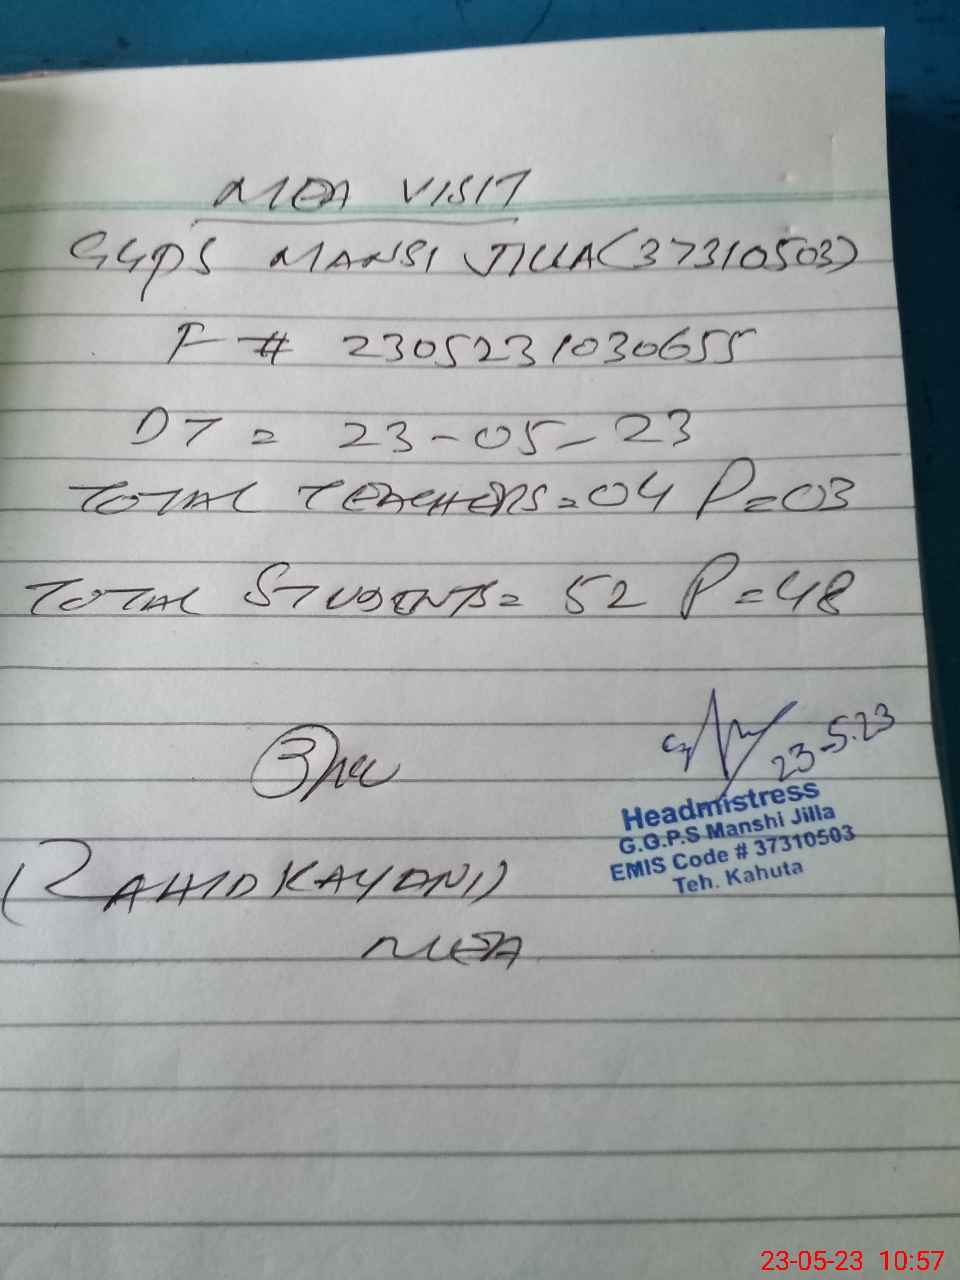 MEA VISIT
GGPS MANSI JILLA (37310503)
F # 2305231030655
DT = 23-05-23
TOTAL TEACHERS = 04 P = 03
TOTAL STUDENTS = 52 P = 48
23-5.23
Headmistress
G.G.P.S Manshi Jilla
EMIS Code # 37310503
Teh. Kahuta
MEA
23-05-23 10:57